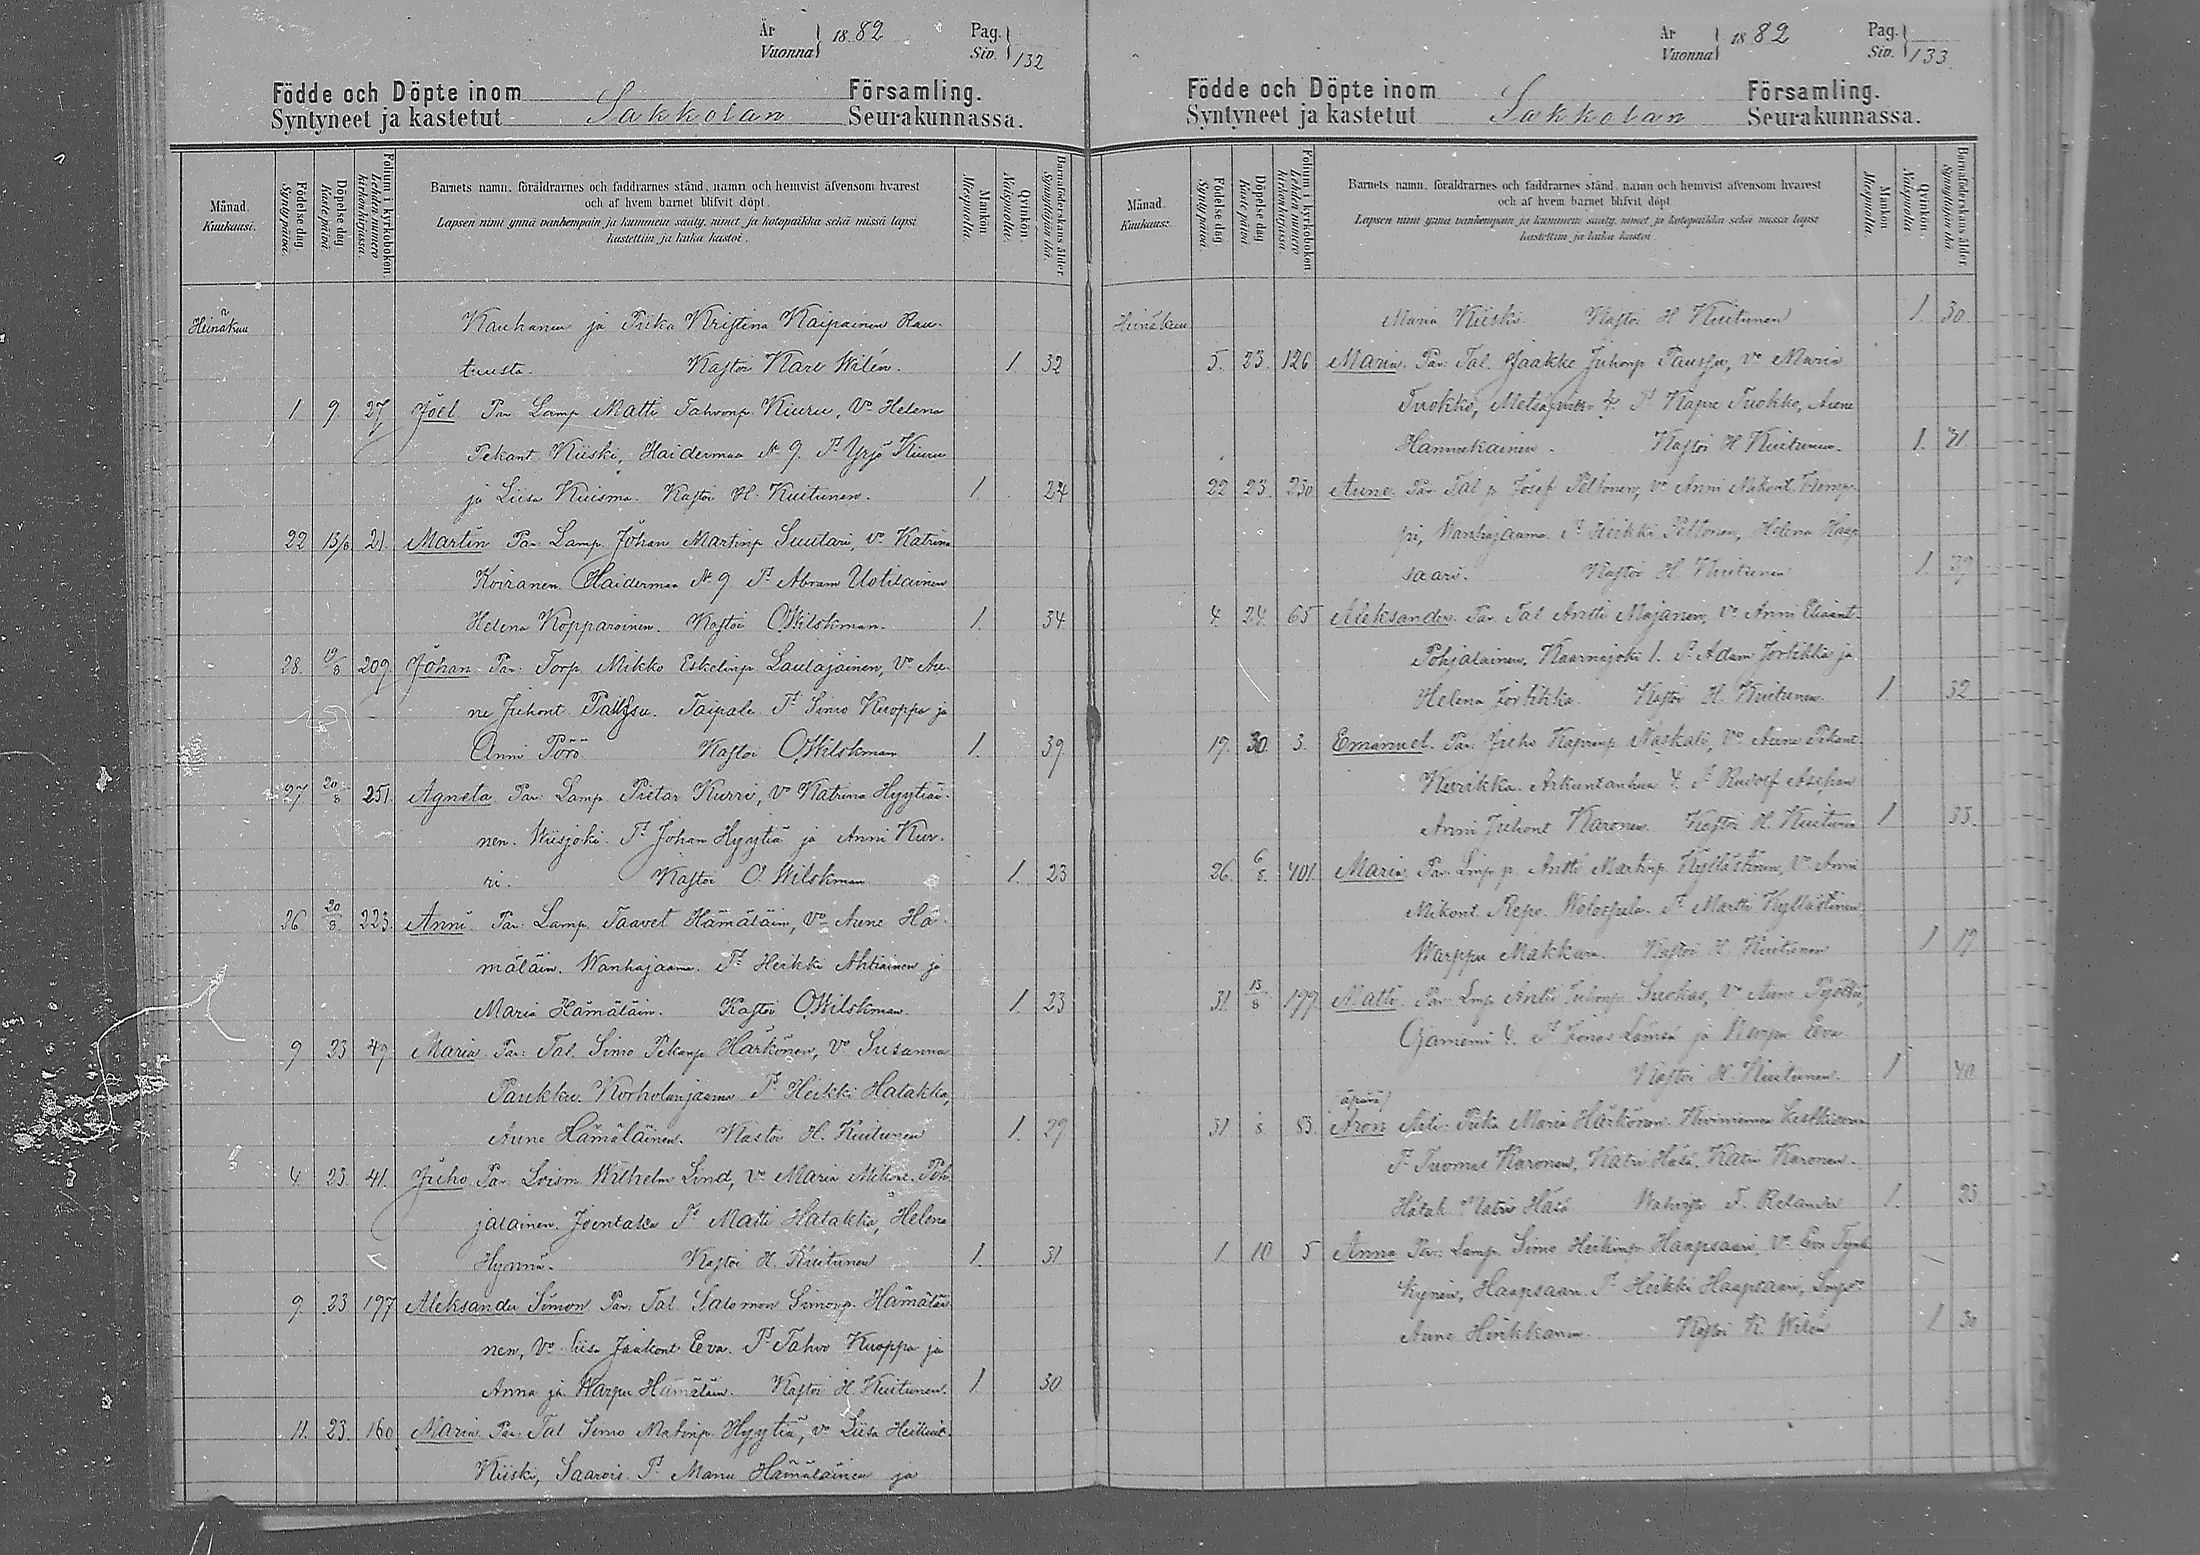 År
Vuonna } 1882
Pag.
Siv. } 132
Födde och Döpte inom Församling.
Syntyneet ja kastetut Sakkolan Seurakunnassa.
Månad.
Kuukausi.
Födelsedag.
Syntypäivä.
Döpelsedag.
Kastepäivä.
Folium i kyrkoboken
Lehden numero
kirkonkirjassa
Barnets namn, föräldrarnes och faddrarnes stånd, namn och hemvist äfvensom hvarest
och af hvem barnet blifvit döpt.
Lapsen nimi ynnä vanhempain ja kummein sääty, nimet ja kotopaikka sekä missä lapsi
kastettiin ja kuka kastoi.
Mankön.
Miespuolia.
Qvinkön.
Naispuolia.
Barnaföderskans ålder.
Synnyttäjän ikä.
Heinäkuu Kauhanen ja Piika Kristina Kaipainen Rau-
tuusta. Kastoi Karl Wilén. 1 32
1 9 27 Joel Par. Lamp. Matti Tahvonp. Kiuru, Vo Helena
Pekant. Kiiski, Haidermaa No 9. Td Yrjö Kiuru
ja Liisa Kuisma. Kastoi H. Kuitunen. 1. 24
22 13/8 21. Martin Par. Lamp. Johan Martinp. Suutari, Vo Katrina
Koiranen. Haidermaa No 9 Td Abram Uotilainen
Helena Kopparoinen. Kastoi O. Wilskman. 1. 34
28. 19/8 209. Johan. Par: Torp. Mikko Eskelinp. Laulajainen, Vo Au-
ne Juhont. Paussu. Taipale Td Simo Kuoppa ja
Anni Pörö Kastoi O. Wilskman 1. 39
27 20/8 251. Agneta Par: Lamp. Pietar Kurri, Vo Katrina Hyytiäi-
nen. Wiisjoki. Td Johan Hyytiä ja Anni Kur-
ri. Kastoi O. Wilskman 1. 23
26 20/8 223. Anni Par: Lamp. Taavet Hämäläin, Vo Aune Hä-
mäläin. Wanhajaama. Td Heikki Ahtiainen ja
Maria Hämäläin. Kastoi O. Wilskman. 1. 23
9 23 49 Maria. Par: Tal. Simo Pekanp. Härkönen, Vo Susanna
Paukku. Korholanjaama Td Heikki Hatakka,
Aune Hämäläinen. Kastoi H. Kuitunen 1. 29
4 23. 41. Juho Par. Loism Wilhelm Lind, Vo Maria Mikont. Poh-
jalainen. Joentaka Td Matti Hatakka, Helena
Hynnä. Kastoi H. Kuitunen 1. 31
9. 23 197 Aleksander Simon Par: Tal. Salomon Simonp. Hämäläi-
nen, Vo Liisa Jaakont Eva. Td Tahvo Kuoppa ja
Anna ja Warpu Hämäläin. Kastoi H. Kuitunen. 1. 30
11. 23. 160 Maria Par: Tal Simo Matinp. Hyytiä, Vo Liisa Heikint.
Kiiski, Saarois Td Manu Hämäläinen ja
År
Vuonna } 1882
Pag.
Siv. } 133
Födde och Döpte inom Församling.
Syntyneet ja kastetut Sakkolan Seurakunnassa.
Månad.
Kuukausi.
Födelsedag.
Syntypäivä.
Döpelsedag
Kastepäivä
Folium i kyrkoboken
Lehden numero
kirkonkirjassa
Barnets namn, föräldrarnes och faddrarnes stånd, namn och hemvist äfvensom hvarest
och af hvem barnet blifvit döpt.
Lapsen nimi ynnä vanhempain ja kummein sääty, nimet ja kotopaikka sekä missä lapsi
kastettiin ja kuka kastoi.
Mankön
Miespuolia.
Qvinkön.
Naispuolia.
Barnaföderskans ålder.
Synnyttäjän ikä.
Heinäkuu Maria Kiiski. Kastoi H. Kuitunen 1. 30.
5. 23. 126 Maria. Par. Tal. Jaakko Juhonp. Paussu, Vo Maria
Tuokko, Metsäpirtti 4. Td Kapre Tuokko, Aune
Hannukainen. Kastoi H Kuitunen. 1. 41.
22 23. 230 Aune. Par. Tal. p. Josef Peltonen, Vo Anni Mikont. Temp-
pi, Wanhajaama. Td Heikki Peltonen, Helena Haap
saari. Kastoi H. Kuitunen 1. 29
4. 24. 65 Aleksander. Par. Tal Antti Majanen, Vo Anni Eliaant.
Pohjalainen, Kaarnajoki 1. Td Adam Jortikka ja
Helena Jortikka. Kastoi H. Kuitunen 1 32
19. 30. 3. Emanuel. Par. Juho Kaprenp. Naskali, Vo Aune Pekant.
Arkuntanhua 4. Td Rudolf
Anni Juhont Karonen. Kastoi H. Kuitunen 1 33.
26. 6/8. 401 Maria Par. p. Antti Martinp. Kyllästinen, Vo Anni
Mikont. Repo. Td Martti Kyllästinen
Warppu Makkura. Kastoi H. Kuitunen 1 19
31. 13/8 199. Matti. Par. Antti Juhonp. Suokas, Vo Aune
4. Td Jonas ja Eva
Kastoi H. Kuitunen. 1 40
/äpärä/
31. 8. 83. Aron Äiti. Piika Maria Härkönen. Kiviniemen
Td Tuomas Karonen, Katri Karonen.
Hätäk. Wahvist. F. Relander 1. 23.
1. 10 5 Anna Par. Lamp. Simo Heikinp. Haapsaari, Vo Eva Tynk-
kynen, Haapsaari. Td Heikki Haapsaari,
Aune Hinkkanen. Kastoi K. Wilén 1 30